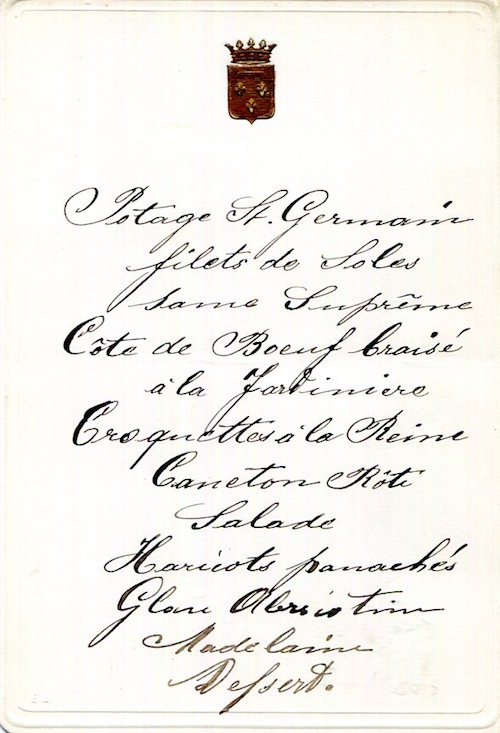 Potage St. Germain
filets de Soles
same Suprême
Côte de Boeuf braisé
à la Jardiniere
Croquettes à la Reine
Caneton Rôti
Salade
Haricots panachés
Glace Abricotine
Madelaine
Dessert.